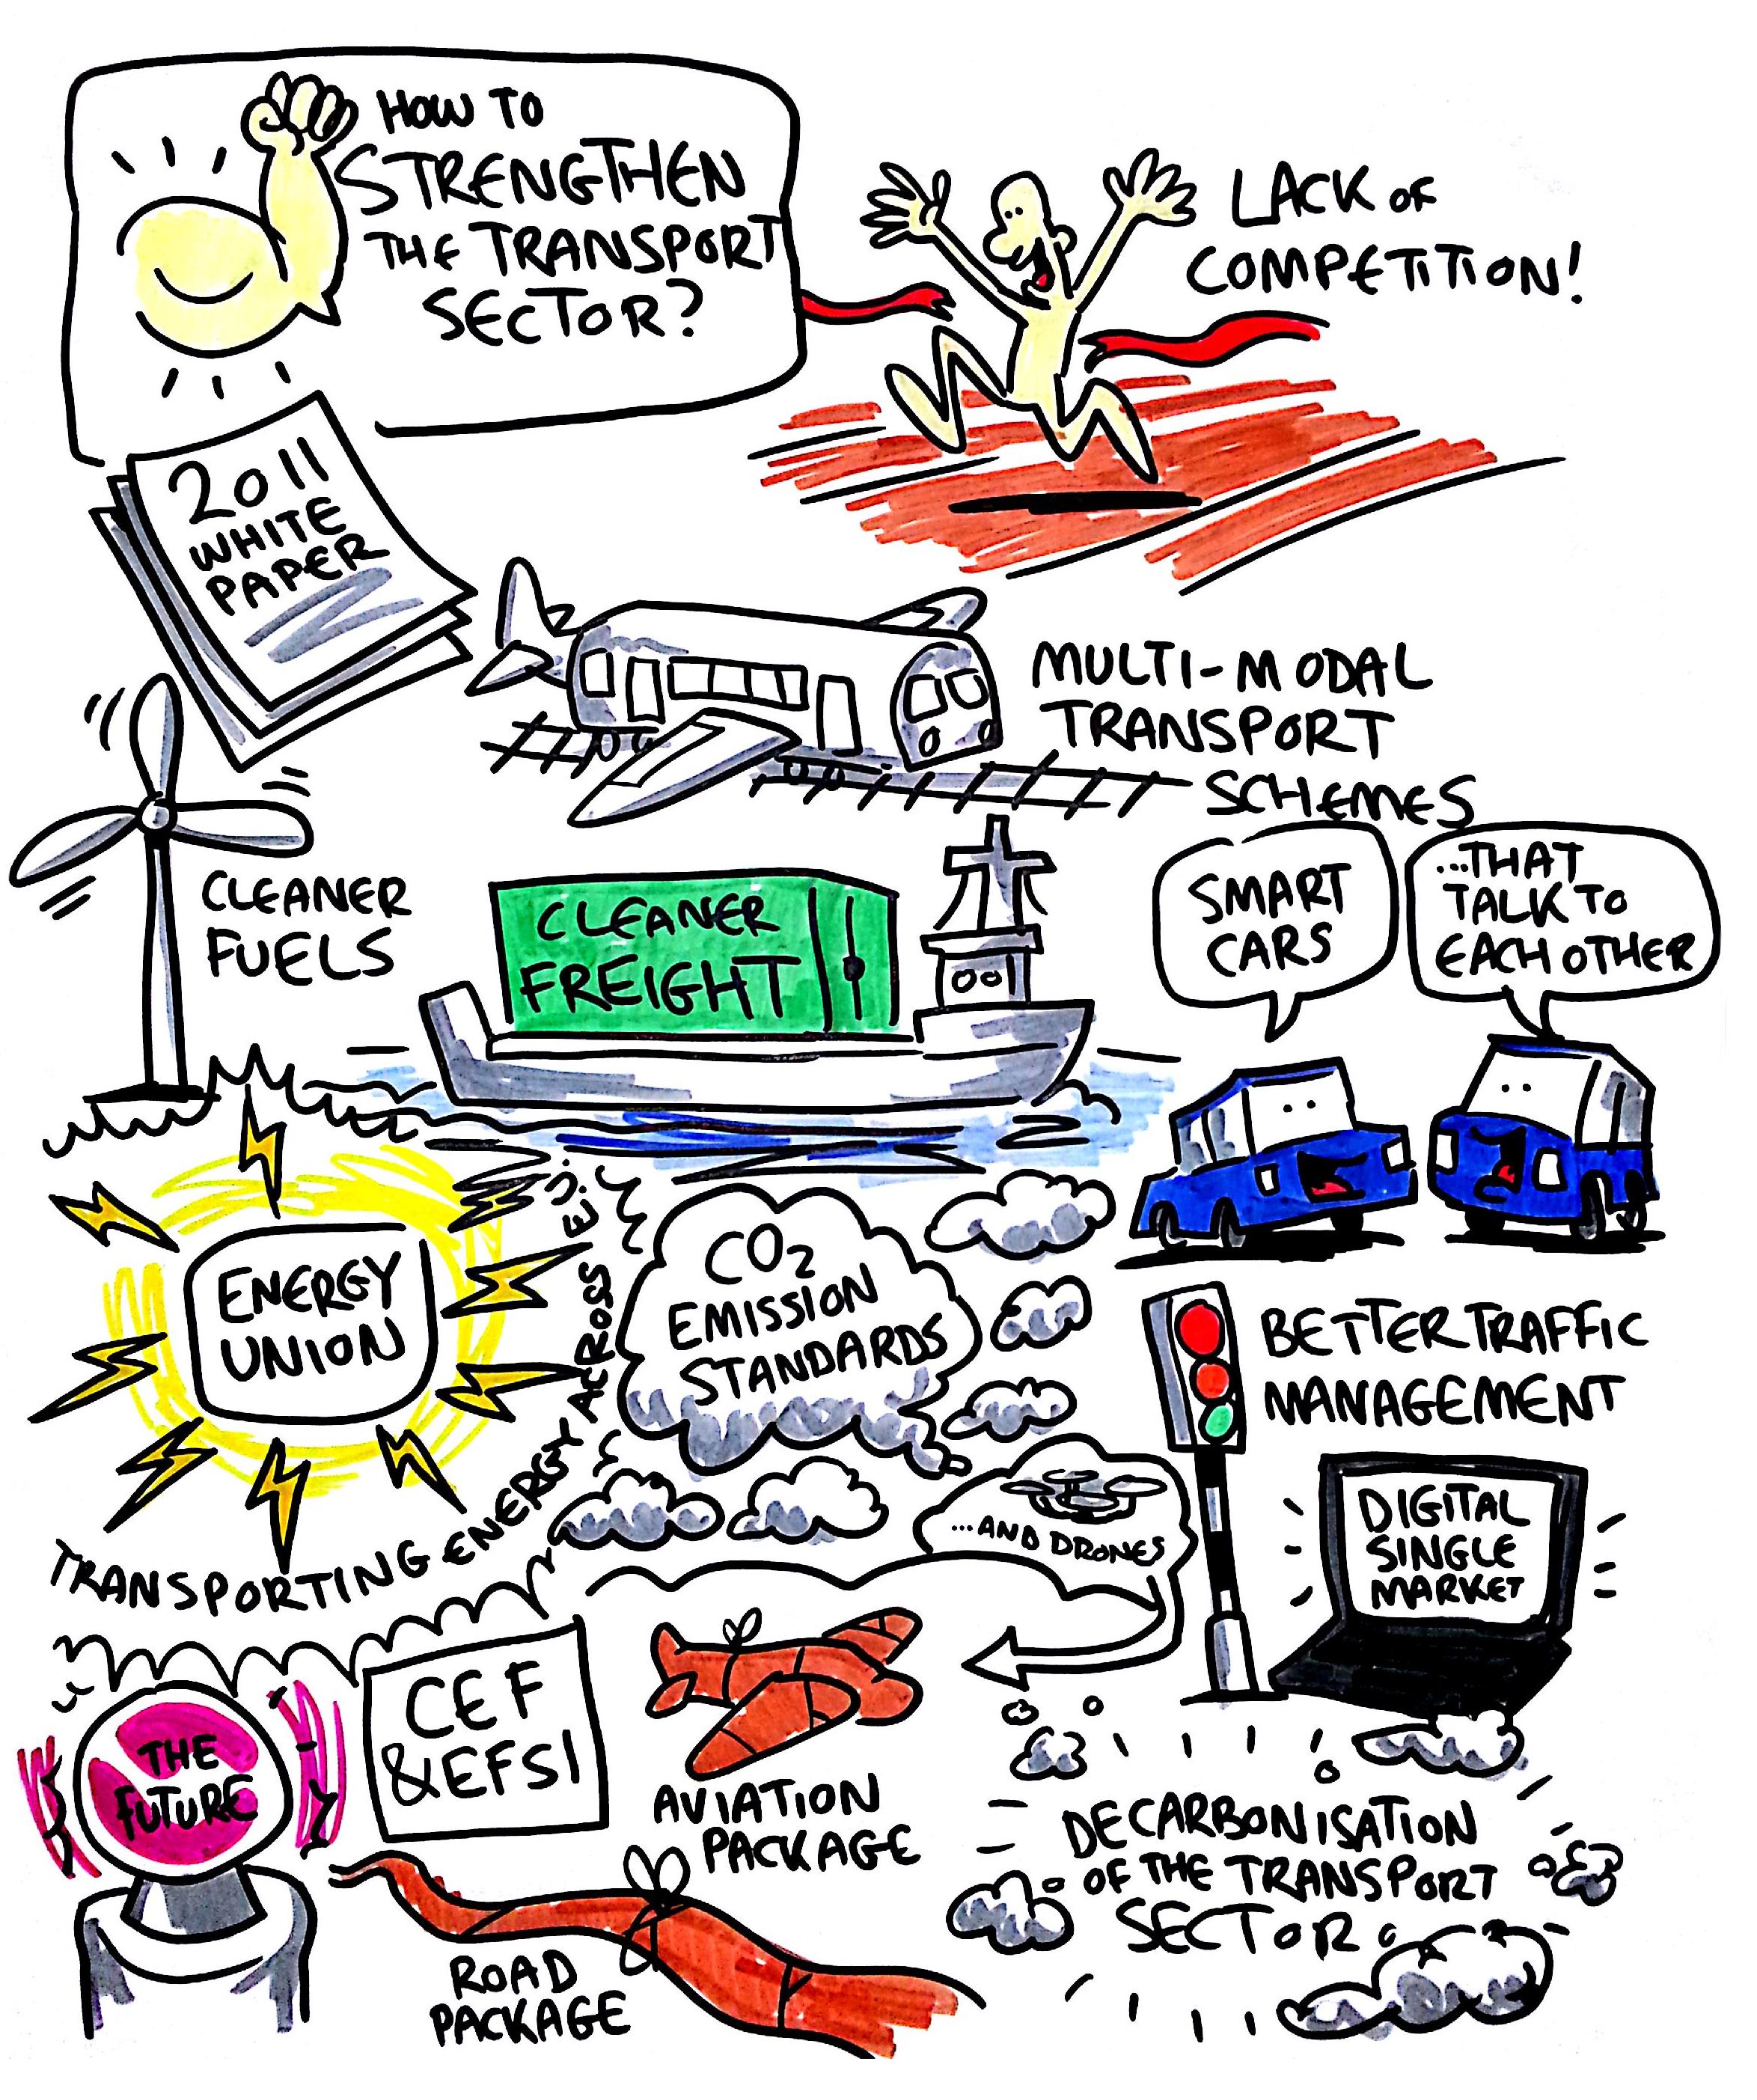 HOW TO
STRENGTHEN
THE TRANSPORT
SECTOR?
LACK OF
COMPETITION!
2011
WHITE
PAPER
MULTI-MODAL
TRANSPORT
SCHEMES
CLEANER
FUELS
CLEANER
FREIGHT
SMART
CARS
...THAT
TALK TO
EACH OTHER
ENERGY
UNION
TRANSPORTING ENERGY ACROSS E.U.
CO2
EMISSION
STANDARDS
BETTER TRAFFIC
MANAGEMENT
...AND DRONES
DIGITAL
SINGLE
MARKET
THE
FUTURE
CEF
& EFSI
AVIATION
PACKAGE
ROAD
PACKAGE
DECARBONISATION
OF THE TRANSPORT
SECTOR